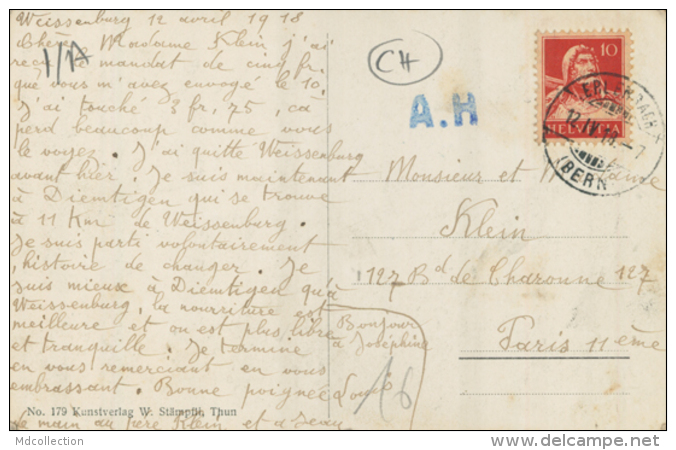 Weissenburg 12 avril 1918
Chère Madame Klein j'ai
reçu le mandat de cinq fr.
que vous m'avez envoyé le 10.
J'ai touché 3 fr, 75, ça
perd beaucoup comme vous
le voyez. J'ai quitté Weissenburg
avant hier. Je suis maintenant
à Diemtigen qui se trouve
à 11 Km de Weissenburg.
Je suis parti volontairement
, histoire de changer. Je
suis mieux à Diemtigen qu'à
Weissenburg, la nourriture est
meilleure et on est plus libre
et tranquille. Je termine
en vous remerciant en vous
embrassant. Bonne poignée
de main au père Klein et à Jean
Louis
Bonjour
à Joséphine
No. 179 Kunstverlag W. Stämpfli, Thun
1/1A
CH
A.H
10
HELVETIA
12.IV.18.-7
(BERN)
Monsieur et Madame
Klein
127 Bd de Charonne 127
Paris 11ème
16
Mdcollection
www.delcampe.net